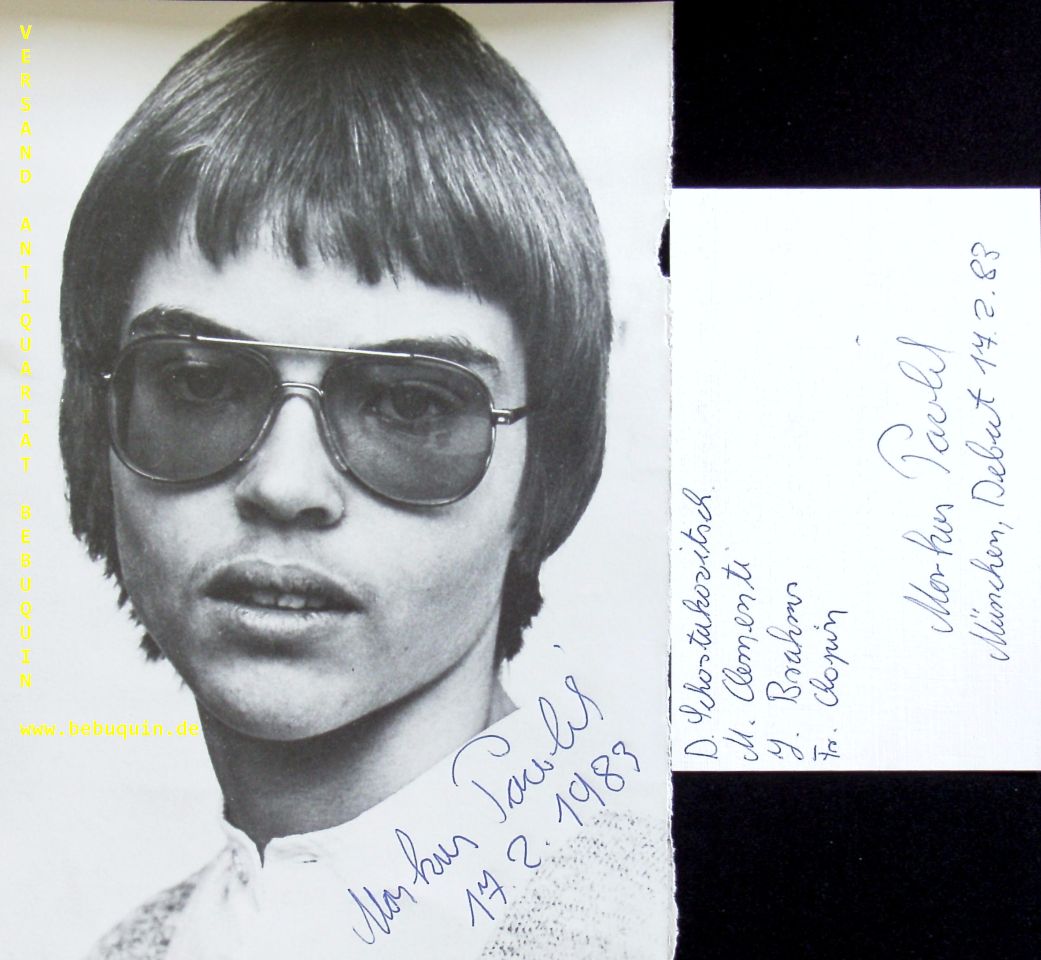 VERSAND ANTIQUARIAT BEBUQUIN
www.bebuquin.de
Markus Pawlik
17. 2. 1983
D. Schostakovitsch
M. Clementi
J. Brahms
Fr. Chopin
Markus Pawlik
München, Debut 17.2.83